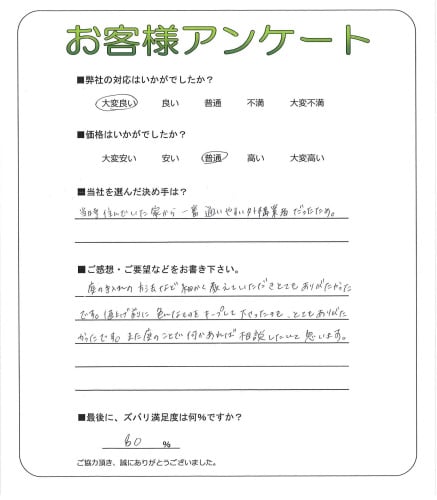 お客様アンケート
■弊社の対応はいかがでしたか？
大変良い 良い 普通 不満 大変不満
■価格はいかがでしたか？
大変安い 安い 普通 高い 大変高い
■当社を選んだ決め手は？
当時住んでいた家から一番通いやすい外構業者だったため。
■ご感想・ご要望などをお書き下さい。
庭の手入れの方法など細かく教えていただきとてもありがたかった
です。値上げ前に色んなものをキープして下さったのも、とてもありがた
かったです。また庭のことで何かあれば相談したいと思います。
■最後に、ズバリ満足度は何%ですか？
80 %
ご協力頂き、誠にありがとうございました。